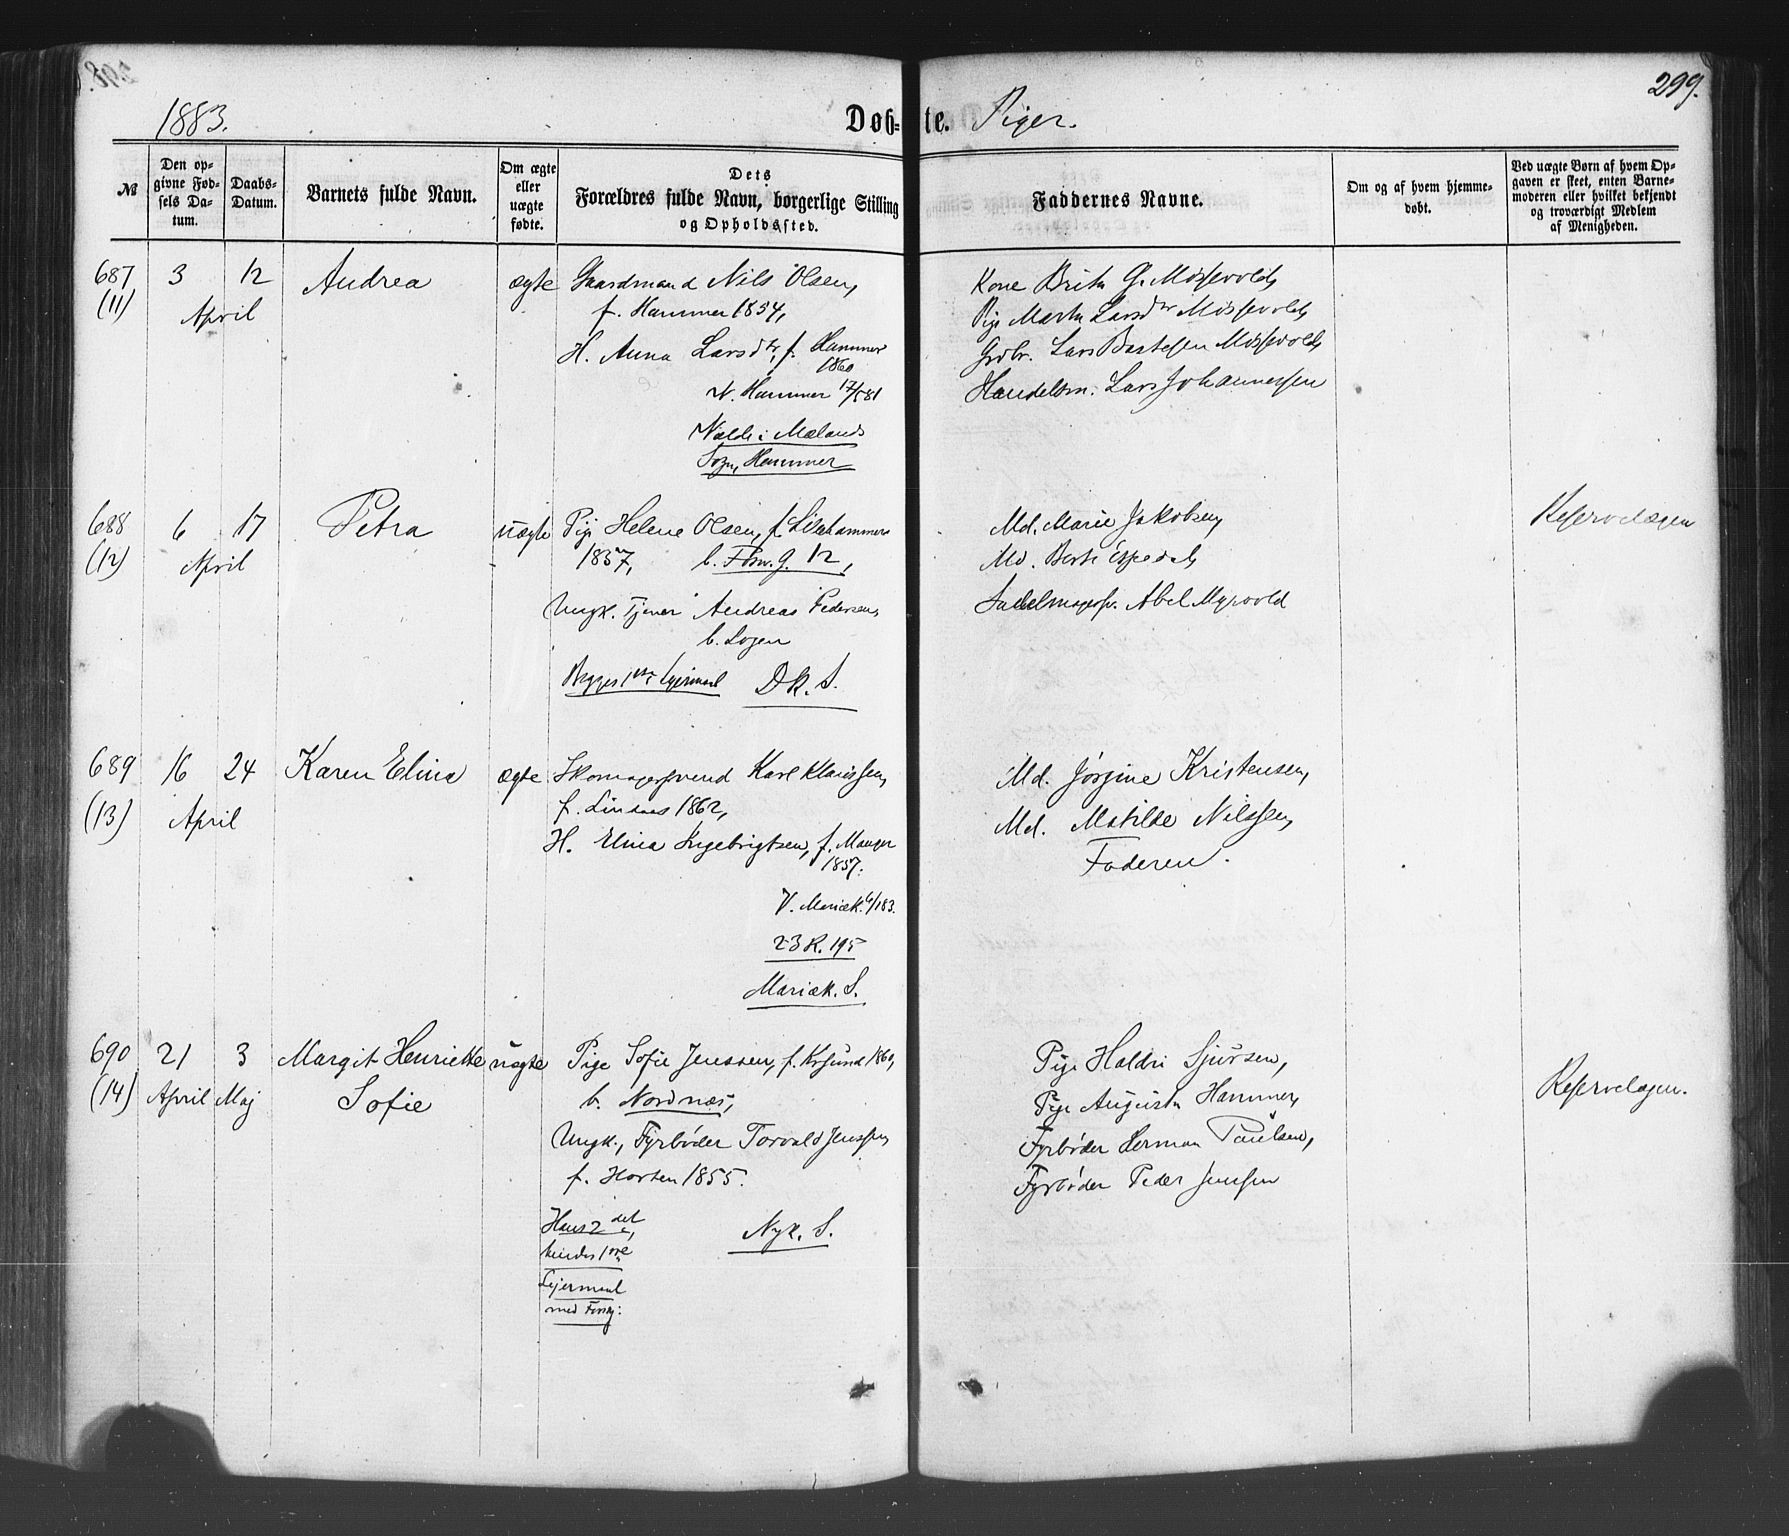 1883.
Døb=te. Piger.
299.
№
Den opgivne Fødsels Datum.
Daabs-Datum.
Barnets fulde Navn.
Om ægte eller uægte fødte.
Dets Forældres fulde Navn, borgerlige Stilling og Opholdssted.
Faddernes Navne.
Om og af hvem hjemmedøbt.
Ved uægte Børn af hvem Opgaven er skeet, enten Barnemoderen eller hvilket bekjendt og troværdigt Medlem af Menigheden.
687
(11)
3 12
April
Andrea
ægte
Gaardmand Nils Olsen,
f. Hammer 1854,
H. Anna Larsdtr, f. Hammer
1860
V. Hammer 17/5 81
i Mælands
Sogn, Hammer
Kone Brita G. Mössevold,
Pige Marta Larsdtr Mössevold,
Grdbr. Lars Mössevold,
Handelsm. Lars Johannessen
688
(12)
6 17
April
Petra
uægte
Pige Helene Olsen, f. Lillehammer
1857, b. 12,
Ungk. Tjener Andreas Pedersen,
b. Logen
Begges 1ste Lejermaal DK. S.
Md. Marie Jakobsen,
Md. Berte Espedal,
Sadelmagersv. Abel Myrvold
Reservelægen
689
(13)
16 24
April
Karen Elina
ægte
Skomagersvend Karl Klaussen,
f. Lindaas 1862,
H. Elina Ingebrigtsen, f. Manger
1857.
V. Mariæk. 6/1 83.
23 R. 195
Mariæk. S.
Md. Jørgine Kristensen,
Md. Matilde Nilssen,
Faderen.
690
(14)
21 3
April Maj
Margit Henriette
Sofie
uægte
Pige Sofie Jenssen, f. Krsund 1860,
b. Nordnæs,
Ungk., Fyrbøder Torvald Jenssen,
f. Horten 1855.
Hans 2det,
hendes 1ste
Lejermaal
med
Nyk. S.
Pige Haldri Sjursen,
Pige Augusta Hammer,
Fyrbøder Herman Paulsen,
Fyrbøder Peder Jenssen
Reservelægen.